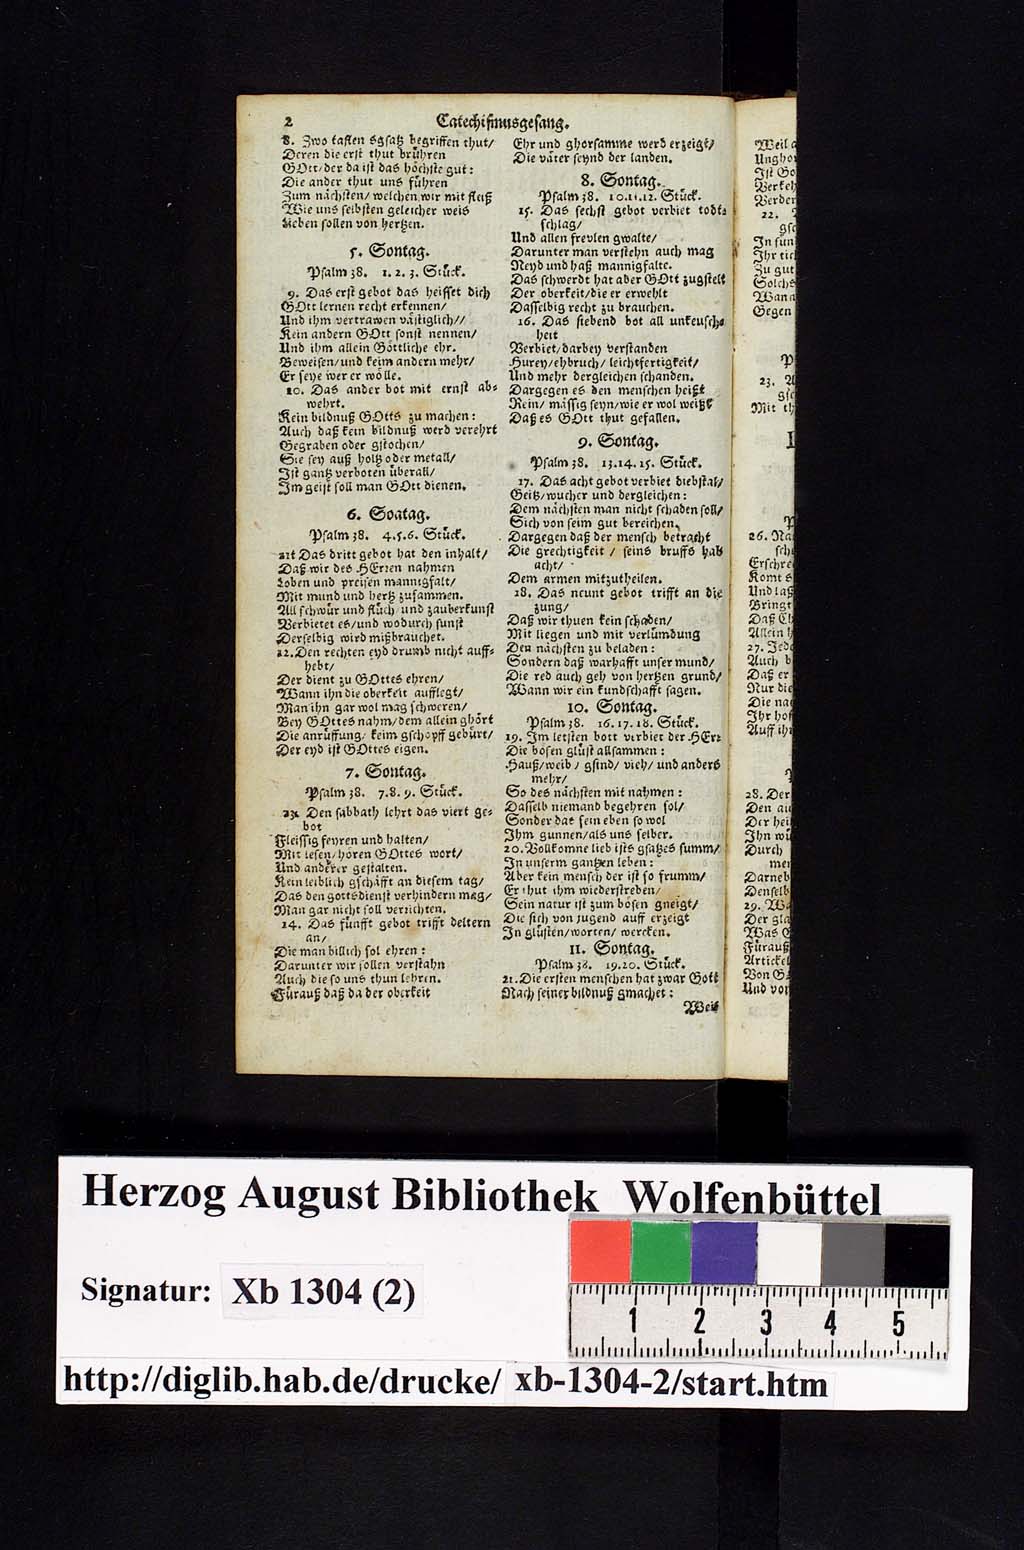 2 Catechismusgesang.
8. Zwo taflen sgsatz begriffen thut/
Deren die erst thut brühren
GOtt/der da ist das höchste gut:
Die ander thut uns führen
Zum nächsten/ welchen wir mit fleiß
Wie uns selbsten geleicher weis
Lieben sollen von hertzen.
5. Sontag.
Psalm 38. 1. 2. 3. Stück.
9. Das erst gebot das heisset dich
GOtt lernen recht erkennen/
Und ihm vertrawen västiglich//
Kein andern GOtt sonst nennen/
Und ihm allein Göttliche ehr.
Beweisen/und keim andern mehr/
Er seye wer er wölle.
10. Das ander bot mit ernst ab-
wehrt.
Kein bildnuß GOtts zu machen:
Auch daß kein bildnuß werd verehrt
Gegraben oder gstochen/
Sie sey auß holtz oder metall/
Ist gantz verboten überall/
Im geist soll man GOtt dienen.
6. Soatag.
Psalm 38. 4.5.6. Stück.
11. Das dritt gebot hat den inhalt/
Daß wir des HErren nahmen
Loben und preisen mannigfalt/
Mit mund und hertz zusammen.
All schwür und flüch/und zauberkunst
Verbietet es/und wodurch sunst
Derselbig wird mißbrauchet.
12. Den rechten eyd drumb nicht auff-
hebt/
Der dient zu GOttes ehren/
Wann ihn die oberkeit aufflegt/
Man ihn gar wol mag schweren/
Bey GOttes nahm/dem allein ghört
Die anrüffung/ keim gschöpff gebürt/
Der eyd ist GOttes eigen.
7. Sontag.
Psalm 38. 7.8.9. Stück.
13. Den sabbath lehrt das viert ge-
bot
Fleissig feyren und halten/
Mit lesen/hören GOttes wort/
Und anderer gestalten.
Kein leiblich gschäfft an diesem tag/
Das den gottsdienst verhindern mag/
Man gar nicht soll verrichten.
14. Das fünfft gebot trifft deltern
an/
Die man billich sol ehren:
Darunter wir sollen verstahn
Auch die so uns thun lehren.
Fürauß daß da der oberkeit
Ehr und ghorsamme werd erzeigt/
Die väter seynd der landen.
8. Sontag.
Psalm 38. 10.11.12. Stück.
15. Das sechst gebot verbiet todt-
schlag/
Und allen frevlen gwalte/
Darunter man verstehn auch mag
Neyd und haß mannigfalte.
Das schwerdt hat aber GOtt zugstelt
Der oberkeit/die er erwehlt
Dasselbig recht zu brauchen.
16. Das siebend bot all unkeusch-
heit
Verbiet/darbey verstanden
Hurey/ehbruch/ leichtfertigkeit/
Und mehr dergleichen schanden.
Dargegen es den menschen heißt
Rein/ mässig seyn/wie er wol weißt
Daß es GOtt thut gefallen.
9. Sontag.
Psalm 38. 13.14.15. Stück.
17. Das acht gebot verbiet diebstal/
Geitz/wucher und dergleichen:
Dem nächsten man nicht schaden soll/
Sich von seim gut bereichen.
Dargegen daß der mensch betracht
Die grechtigkeit / seins bruffs hab
acht/
Dem armen mitzutheilen.
18. Das neunt gebot trifft an die
zung/
Daß wir thuen kein schaden/
Mit liegen und mit verlümdung
Den nächsten zu beladen:
Sondern daß warhafft unser mund/
Die red auch geh von hertzen grund/
Wann wir ein kundschafft sagen.
10. Sontag.
Psalm 38. 16.17.18. Stück.
19. Im letsten bott verbiet der HErr
Die bösen glüst allsammen:
Hauß/weib / gsind/ vieh/ und anders
mehr/
So des nächsten mit nahmen:
Dasselb niemand begehren sol/
Sonder das sein eben so wol
Ihm gunnen/als uns selber.
20. Vollkomne lieb ists gsatzes summ/
In unserm gantzen leben:
Aber kein mensch der ist so frumm/
Er thut ihm wiederstreben/
Sein natur ist zum bösen gneigt/
Die sich von jugend auff erzeigt
In glüsten/worten/ wercken.
11. Sontag.
Psalm 38. 19.20. Stück.
21. Die ersten menschen hat zwar Gott
Nach seiner bildnuß gmachet:
Weil
Herzog August Bibliothek Wolfenbüttel
Signatur: Xb 1304 (2)
1 2 3 4 5
http://diglib.hab.de/drucke/ xb-1304-2/start.htm